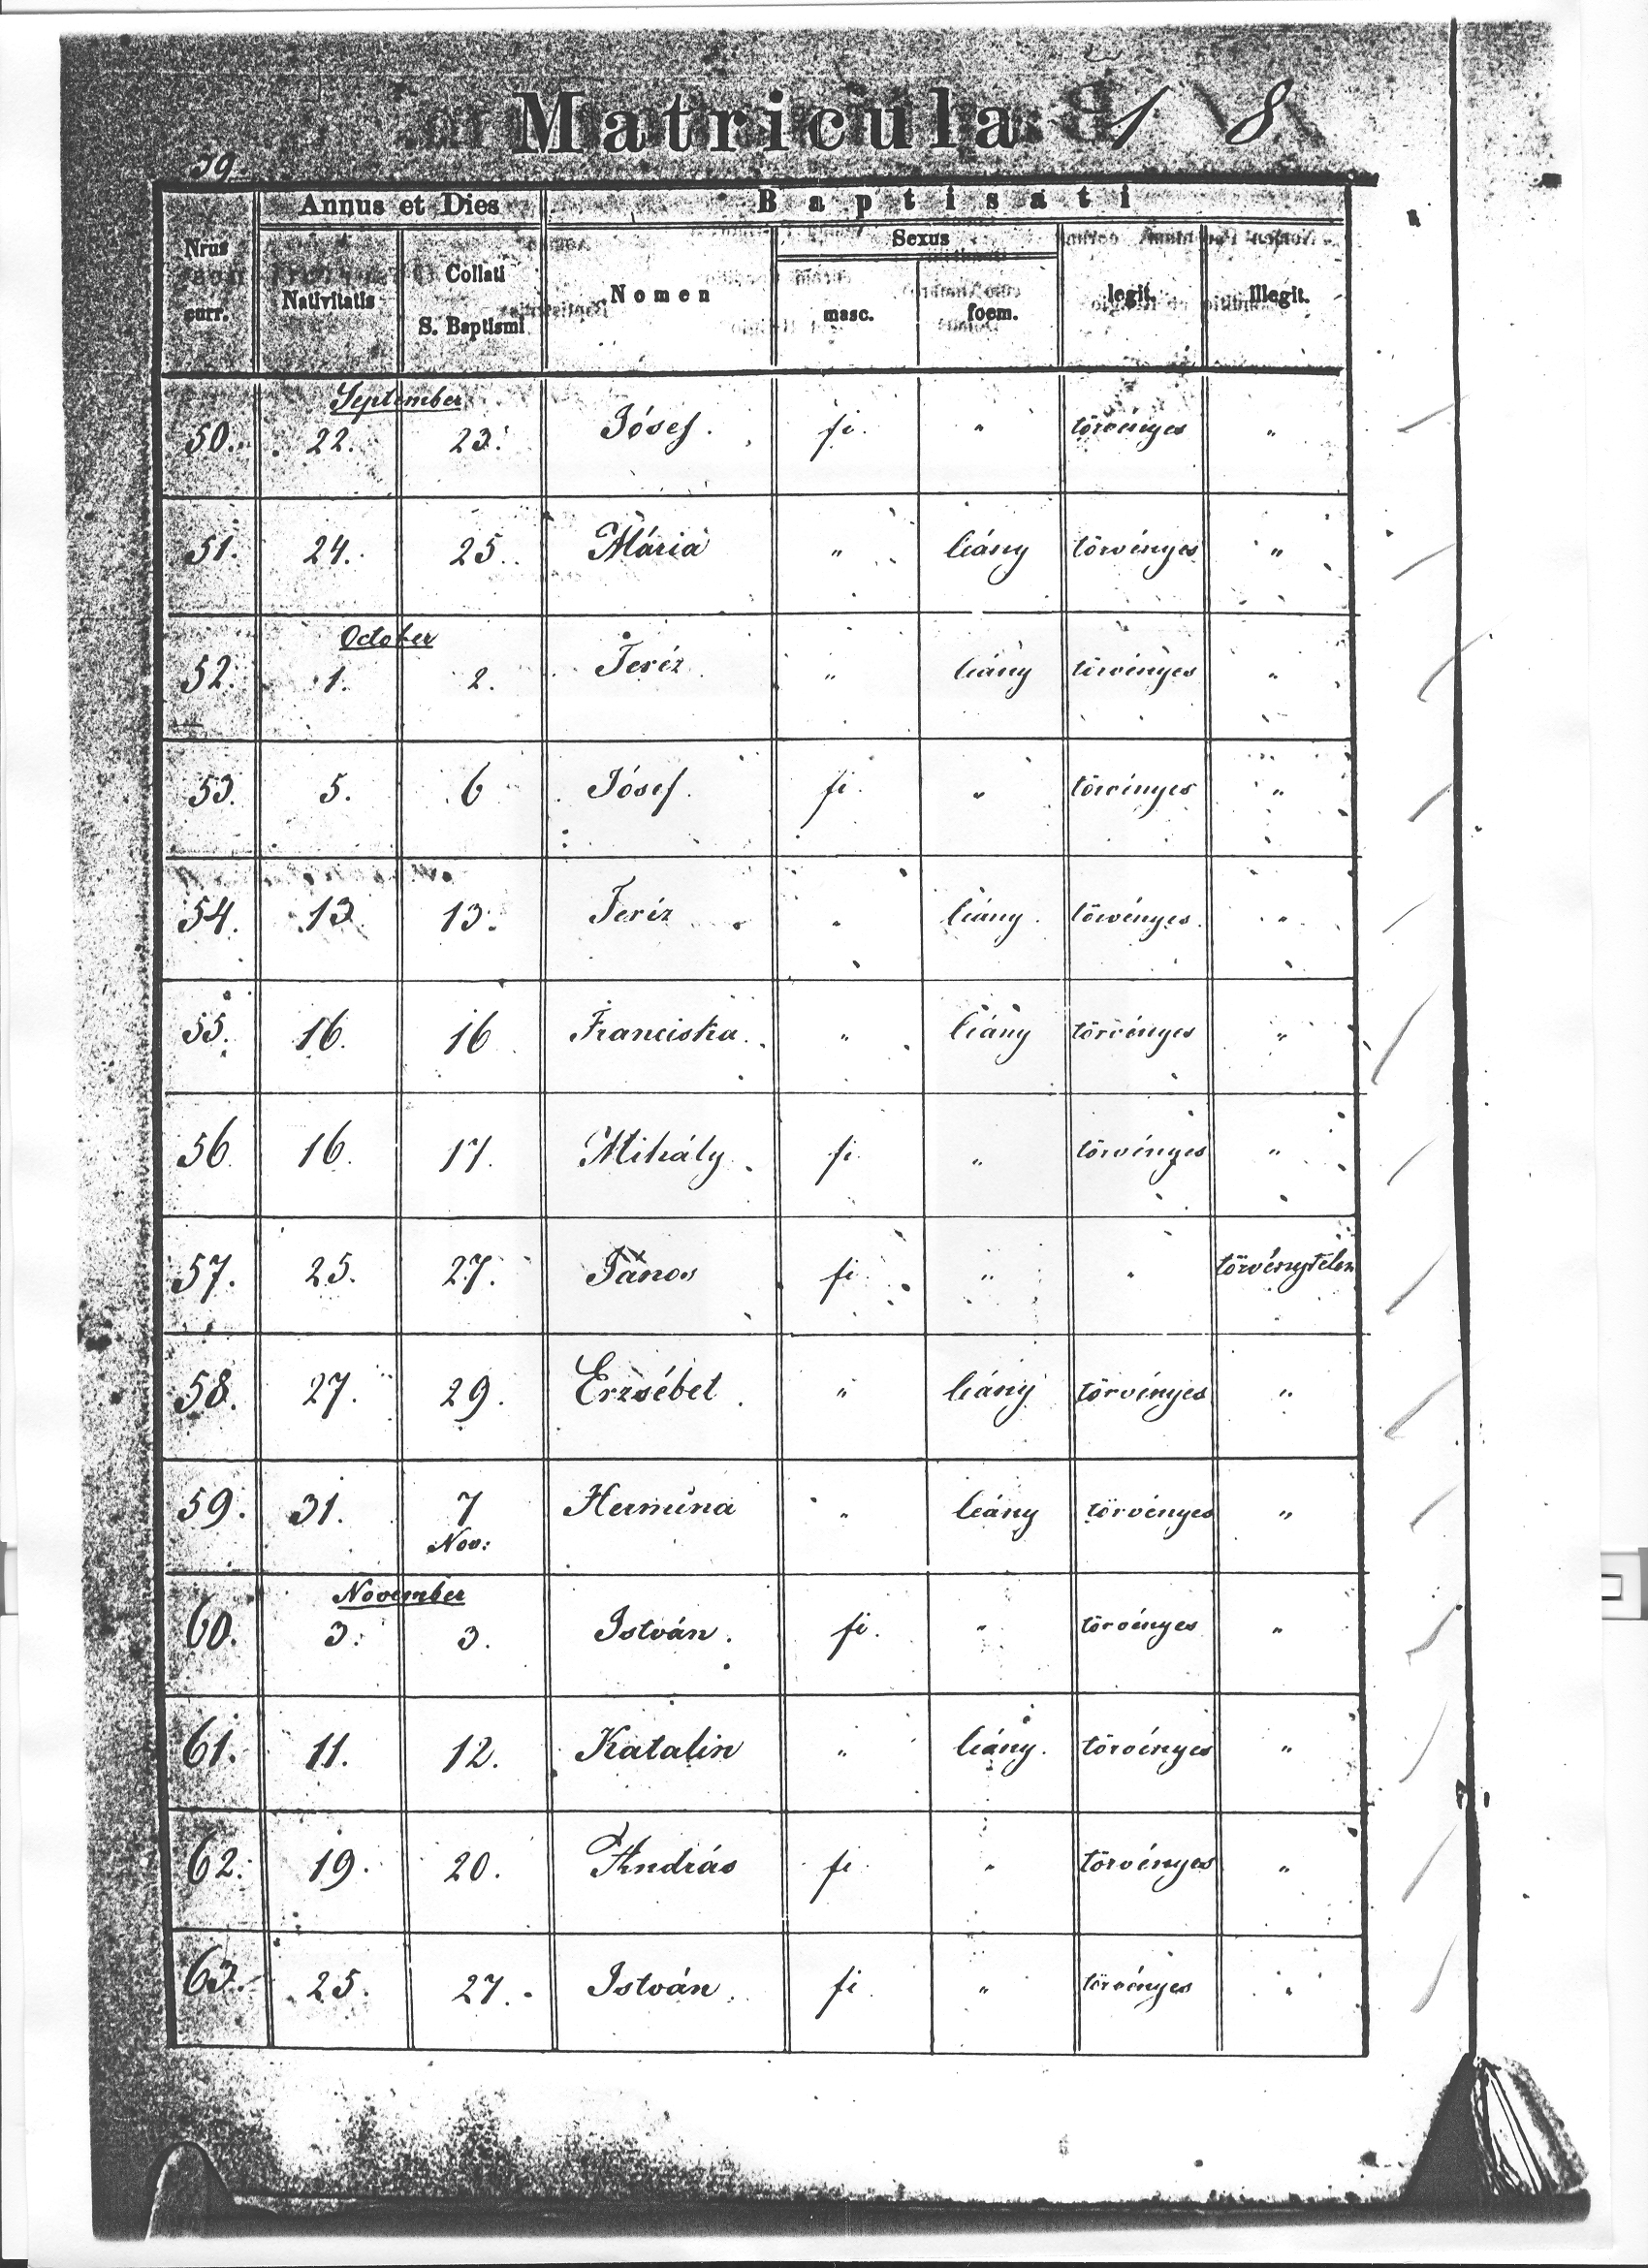 Matricula 1 8
39.
Annus et Dies Baptisati
Nrus curr. Nativitatis Collati S. Baptismi Nomen Sexus masc. foem. legit. illegit.
September
50. 22. 23. Jósef. fi. " törvényes "
51. 24. 25. Mária " leány törvényes "
October
52. 1. 2. Teréz " leány törvényes "
53. 5. 6 Jósef. fi. " törvényes "
54. 13. 13. Teréz " leány. törvényes. "
55. 16. 16 Franciska. " leány törvényes "
56 16. 17. Mihály. fi. " törvényes "
57. 25. 27. János fi. " " törvénytelen
58. 27. 29. Erzsébet. " leány törvényes "
59. 31. 7 Nov: Hermina " leány törvényes "
November
60. 3. 3. István. fi. " törvényes "
61. 11. 12. Katalin " leány. törvényes "
62. 19. 20. András fi. " törvényes "
63. 25. 27. István. fi. " törvényes "